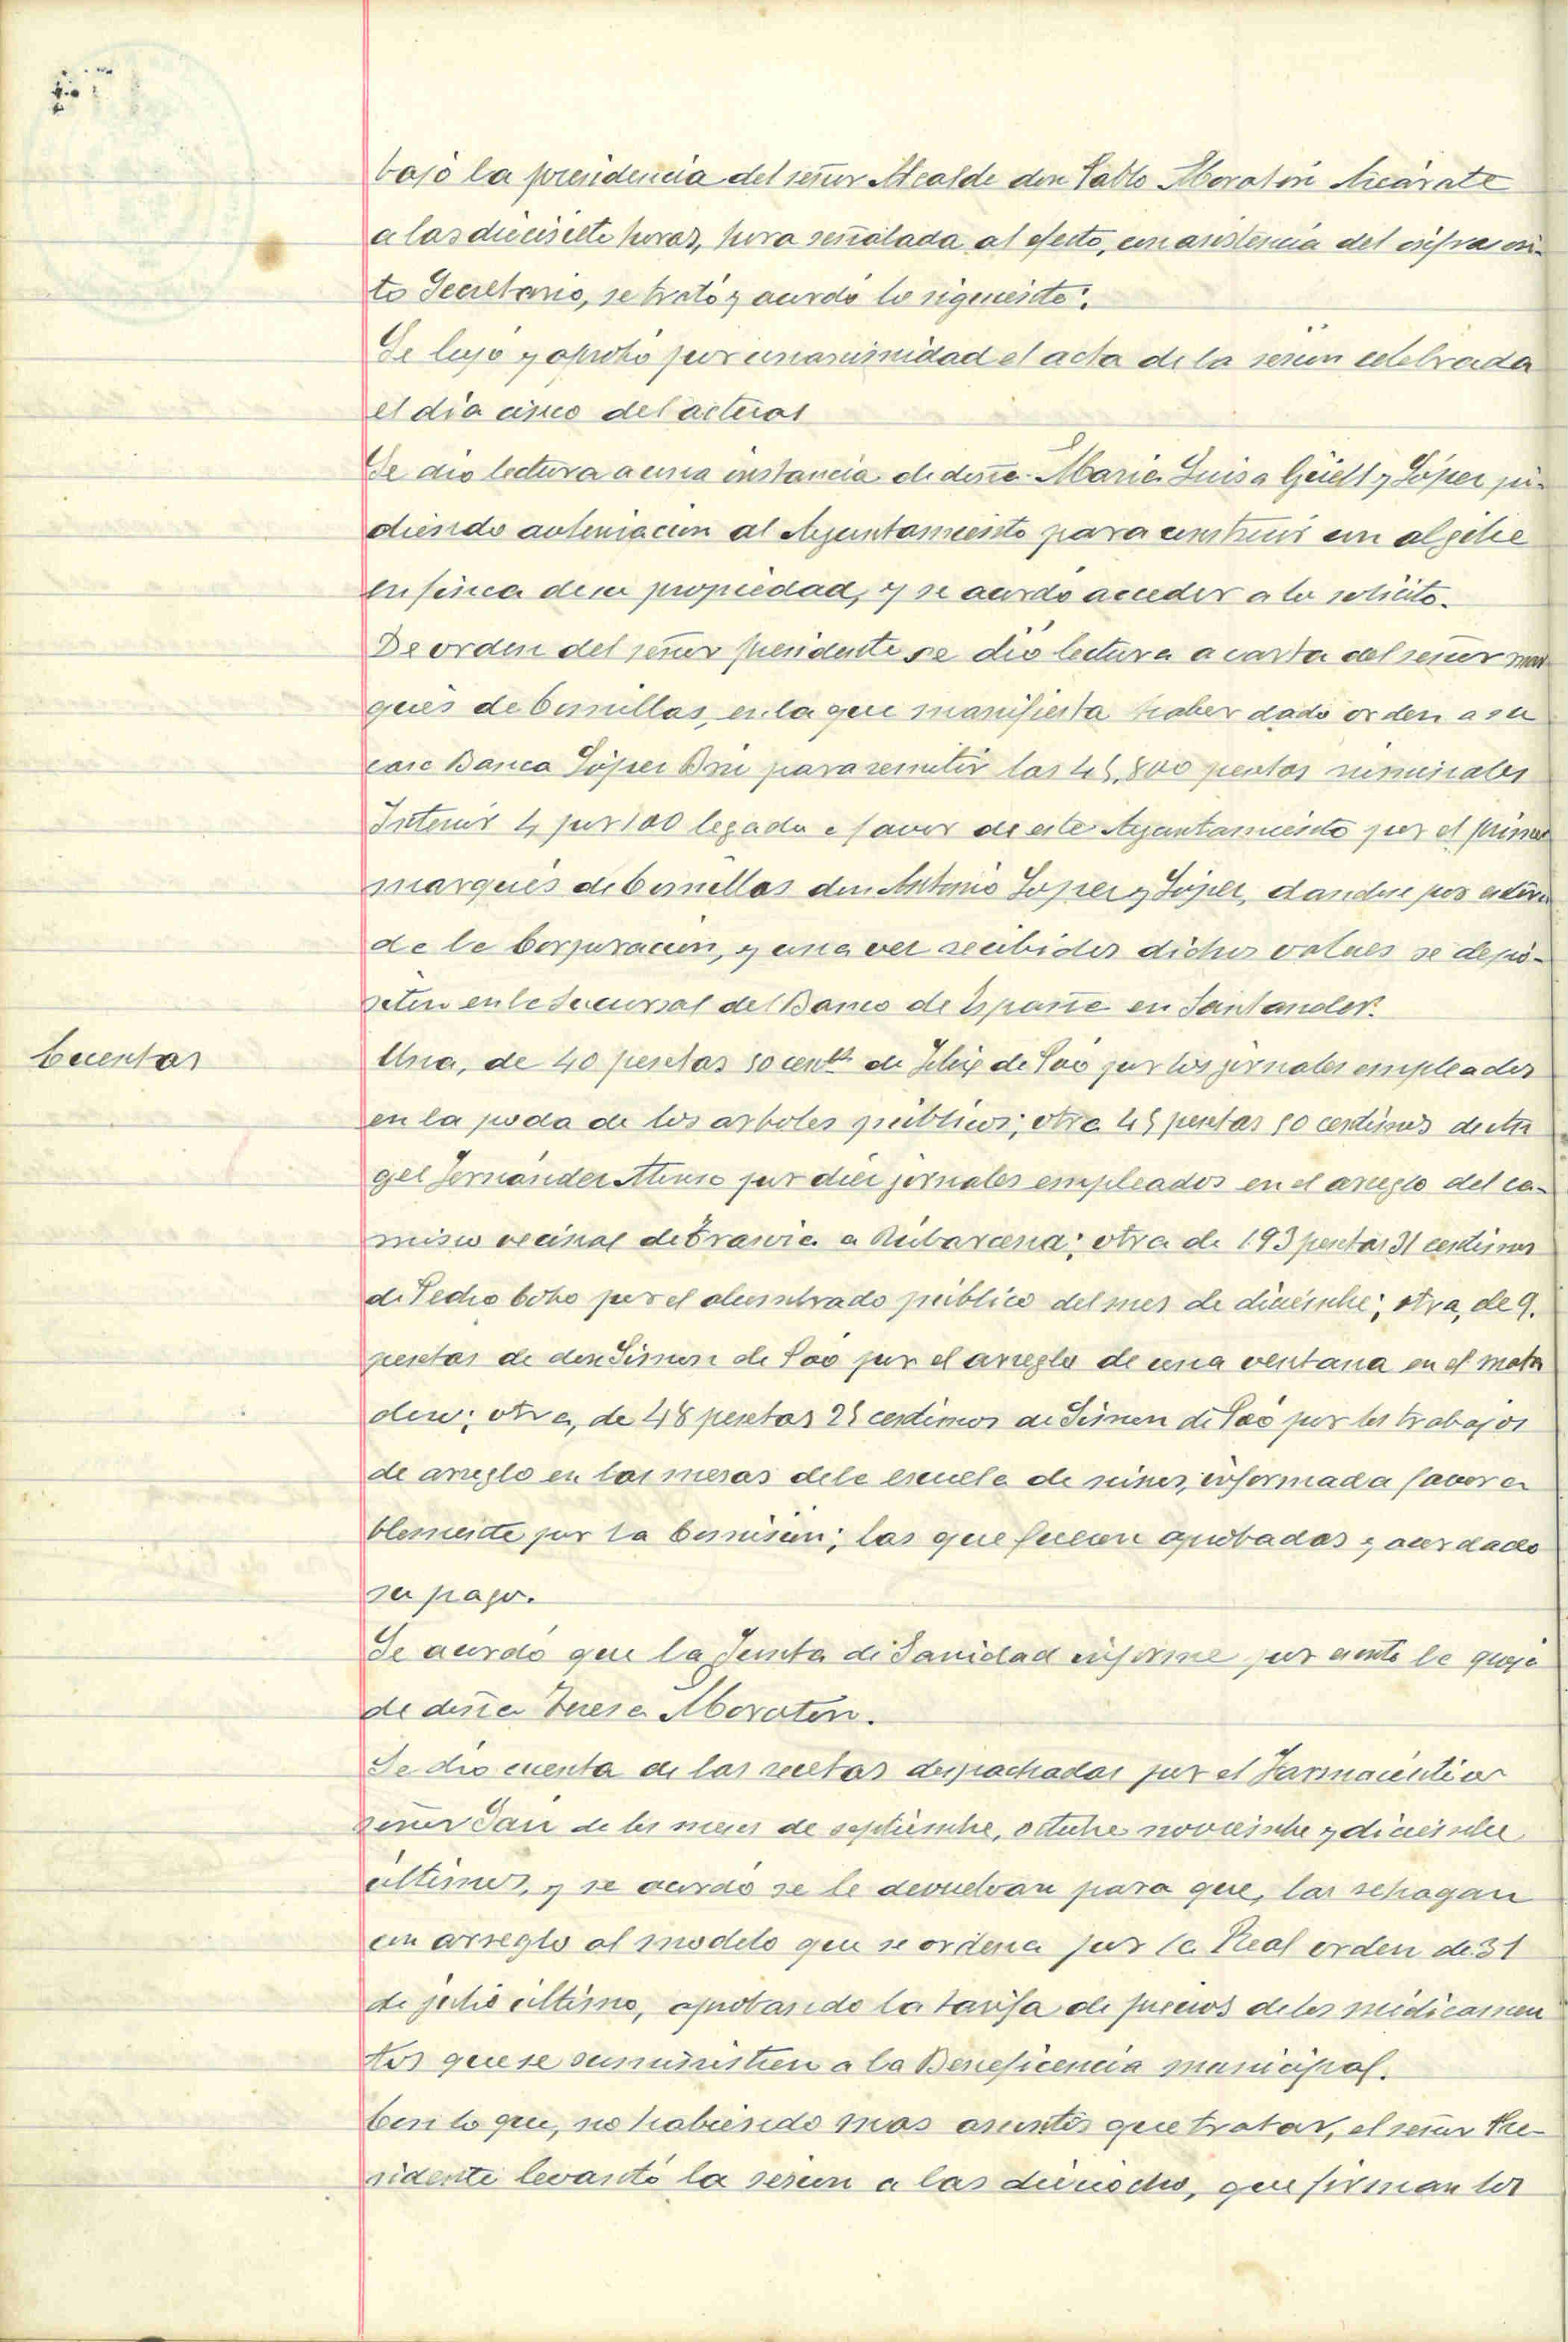 bajo la presidencia del señor Alcalde don Pablo Moratín Azcárate
a las diecisiete horas, hora señalada al efecto, con asistencia del infrascri-
to Secretario, se trató y acordo lo siguiente:
Se leyó y aprobó por unanimidad el acta de la sesion celebrada
el dia cinco del actual
Se dio lectura a una instancia de doña Maria Luisa Güell y López pi-
diendo autorizacion al Ayuntamiento para construir un algibe
en finca de su propiedad, y se acordo acceder a lo solicito.
De orden del señor presidente se dio lectura a carta del señor mar
qués de Comillas, en la que manifiesta haber dado orden a su
casa Banca López Bru para remitir las 45.800 pesetas nominales
Interior 4 por 100 legado a favor de este Ayuntamiento por el primer
marqués de Comillas don Antonio López y López, dandose por
de la Corporacion, y una vez recibidos dichos valores se depo-
siten en la Sucursal del Banco de España en Santander.
Cuentas
Una, de 40 pesetas 50 cents de de Poo por los jornales empleados
en la poda de los arboles publicos; otra 45 pesetas 50 centimos de An
gel Fernández Alonso por diez jornales empleados en el arreglo del ca-
mino vecinal de Trasvia a Rubarcena; otra de 193 pesetas 31 centimos
de Pedro Cobo por el alumbrado público del mes de diciembre; otra, de 9.
pesetas de don Simon de Poo por el arreglo de una ventana en el mata
dero; otra, de 48 pesetas 25 centimos de Simon de Poo por los trabajos
de arreglo en las mesas de la escuela de niños, informada favora
blemente por la Comision; las que fueron aprobadas y acordado
su pago.
Se acordó que la Junta de Sanidad informe por la queja
de doña Teresa Moratín.
Se dio cuenta de las recetas despachadas por el Farmaceutico
señor de los meses de septiembre, octubre noviembre y diciembre
ultimos, y se acordó se le devuelvan para que, las se hagan
con arreglo al modelo que se ordena por la Real orden de 31
de julio ultimo, aprobando la tarifa de precios de los medicamen
tos que se suministren a la Beneficencia municipal.
Con lo que, no habiendo mas asuntos que tratar, el señor Pre-
sidente levantó la sesion a las dieciocho, que firman los